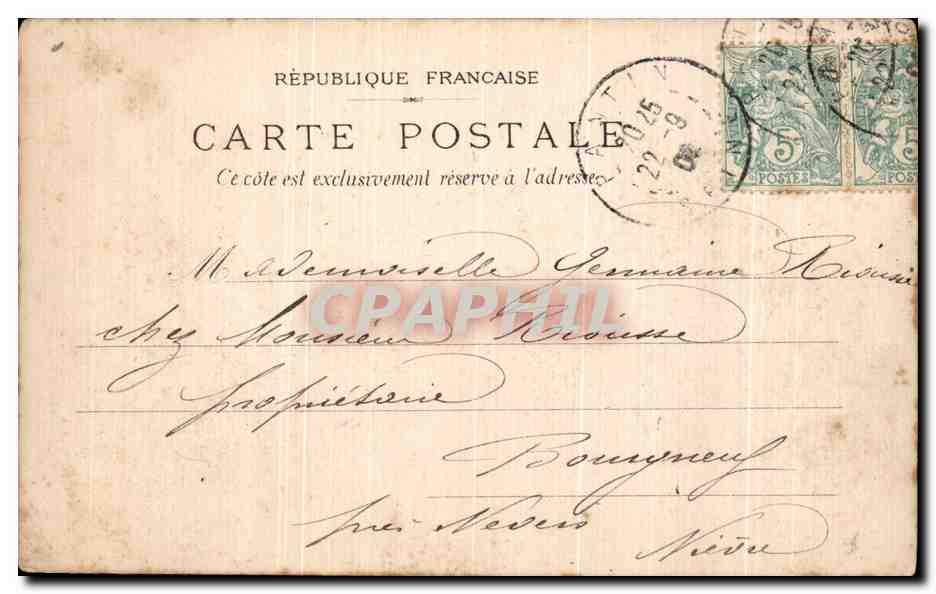 RÉPUBLIQUE FRANCAISE
CARTE POSTALE
Ce côte est exclusivement réserve à l'adresse
PANTIN
20 25
22 -9
5
POSTES
5
Mademoiselle Germaine Riousse
chez Monsieur Riousse
CPAPHIL
propriétaire
Bourgneuf
près Nevers
Nièvre